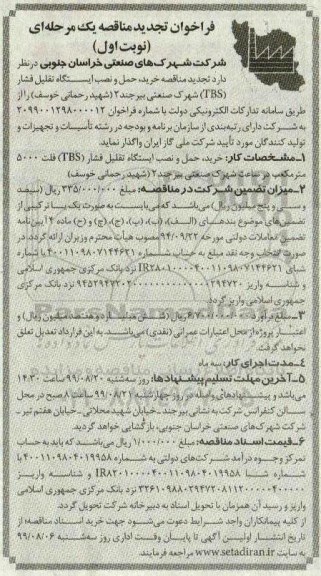 فراخوان تجدید مناقصه یک مرحله‌ای
(نوبت اول)
شرکت شهرک‌های صنعتی خراسان جنوبی درنظر
دارد تجدید مناقصه خرید، حمل و نصب ایستگاه تقلیل فشار
(TBS) شهرک صنعتی بیرجند۲ (شهید رحمانی خوسف) را از
طریق سامانه تدارکات الکترونیکی دولت با شماره فراخوان ۲۰۹۹۰۰۱۲۹۸۰۰۰۰۱۲
به شرکت دارای رتبه‌بندی از سازمان برنامه و بودجه در رشته تأسیسات و تجهیزات و
تولید کنندگان مورد تأیید شرکت ملی گاز ایران واگذار نماید.
۱ـ مشخصات کار: خرید، حمل و نصب ایستگاه تقلیل فشار (TBS) فلت ۵۰۰۰
مترمکعب در ساعت شهرک صنعتی بیرجند ۲ (شهید رحمانی خوسف)
۲ـ میزان تضمین شرکت در مناقصه: مبلغ ۳۳۵/۰۰۰/۰۰۰ ریال (سیصد
و سی و پنج میلیون ریال) می‌باشد که می‌بایست به صورت یک یا ترکیبی از
تضمین‌های موضوع بندهای (الف)، (ب)، (پ)، (ج)، (چ) و (ح) ماده ۴ آیین‌نامه
تضمین معاملات دولتی مورخه ۹۴/۰۹/۲۲ مصوب هیأت محترم وزیران ارائه گردد، در
صورت انتخاب وجه نقد مبلغ به حساب شماره ۴۰۰۱۱۰۹۸۰۷۱۴۴۶۲۱ با شماره
شبای
نزد بانک مرکزی جمهوری اسلامی
و شناسه واریز
نزد بانک مرکزی
جمهوری اسلامی واریز گردد.
۳ـ مبلغ برآورد اولیه: ۶/۷۰۰/۰۰۰/۰۰۰ ریال (شش میلیارد و هفتصد میلیون ریال) و
اعتبار پروژه از محل اعتبارات عمرانی (نقدی) می‌باشد. به این قرارداد تعدیل تعلق
نخواهد گرفت.
۴ـ مدت اجرای کار: سه ماه
۵ـ آخرین مهلت تسلیم پیشنهادها: روز سه‌شنبه ۹۹/۰۸/۲۰ ساعت ۱۴:۳۰
می‌باشد و پیشنهادهای واصله در روز چهارشنبه ۹۹/۰۸/۲۱ ساعت ۸ صبح در محل
سالن کنفرانس شرکت به نشانی بیرجند ـ خیابان شهید محلاتی ـ خیابان هفتم تیر ـ
شرکت شهرک‌های صنعتی خراسان جنوبی، بازگشایی خواهد گردید.
۶ـ قیمت اسناد مناقصه: مبلغ ۱/۰۰۰/۰۰۰ ریال می‌باشد که باید به حساب
تمرکز وجوه درآمد شرکت‌های دولتی به شماره ۴۰۰۱۱۰۹۸۰۴۰۱۹۹۵۸ با
شماره شبا
و شناسه واریز
نزد بانک مرکزی جمهوری اسلامی
واریز و رسید آن همزمان با تحویل اسناد به دبیرخانه شرکت تحویل گردد.
از کلیه پیمانکاران واجد شرایط دعوت می‌شود جهت خرید اسناد مناقصه از
تاریخ انتشار اولین آگهی تا پایان وقت اداری روز سه‌شنبه ۹۹/۰۸/۰۶
به سایت www.setadiran.ir مراجعه فرمایند.